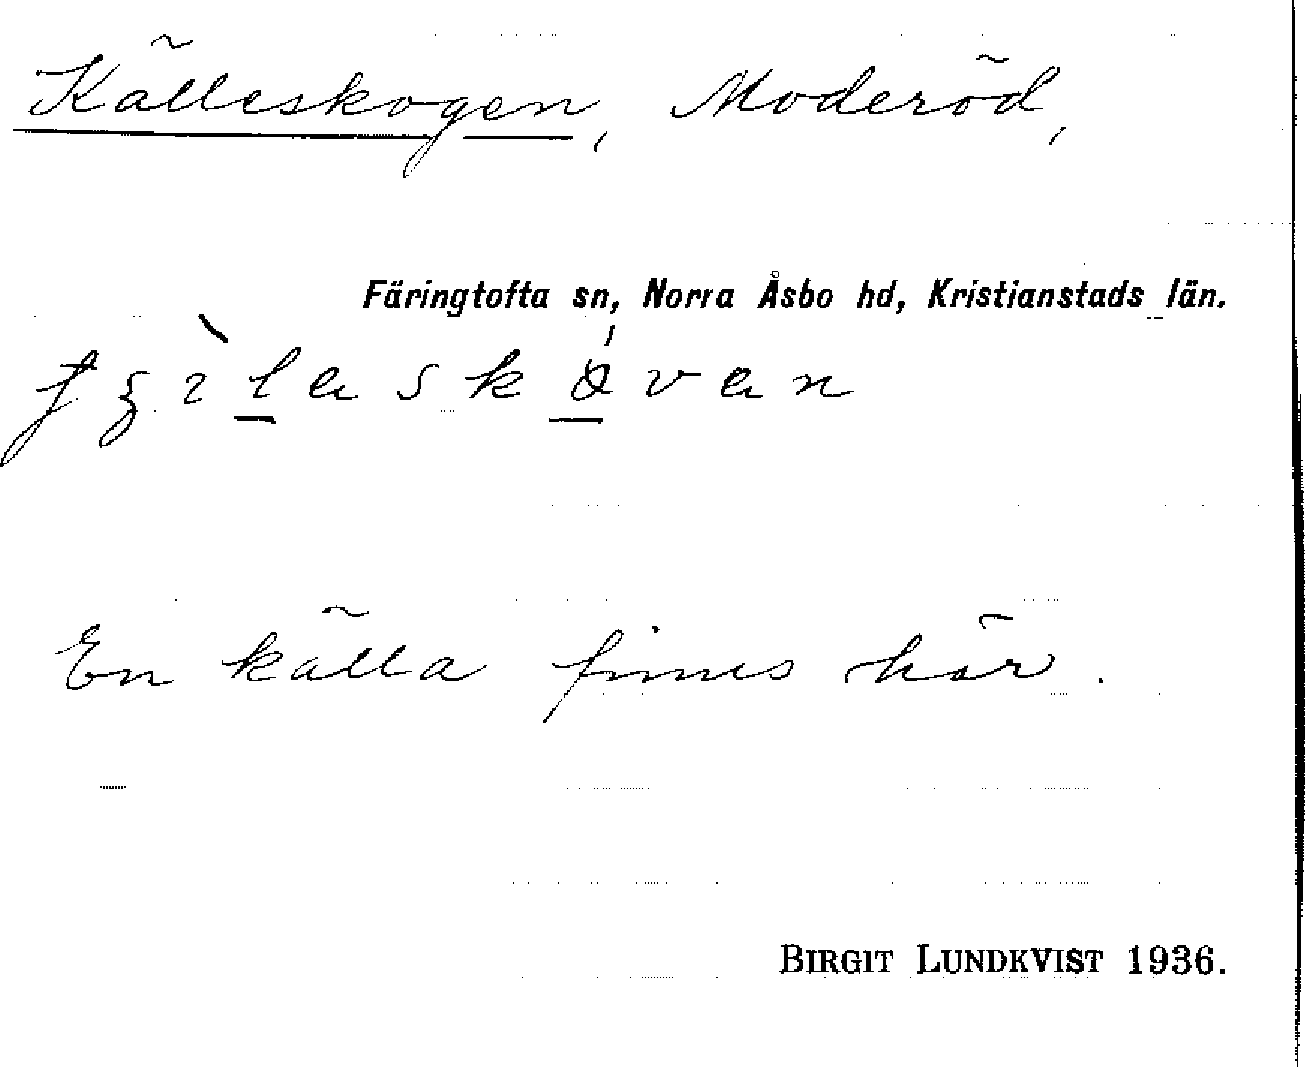 Källeskogen, Moderöd,
Färingtofta sn, Norra Åsbo hd, Kristianstads län.
En källa finnes här.
BIRGIT LUNDKVIST 1936.